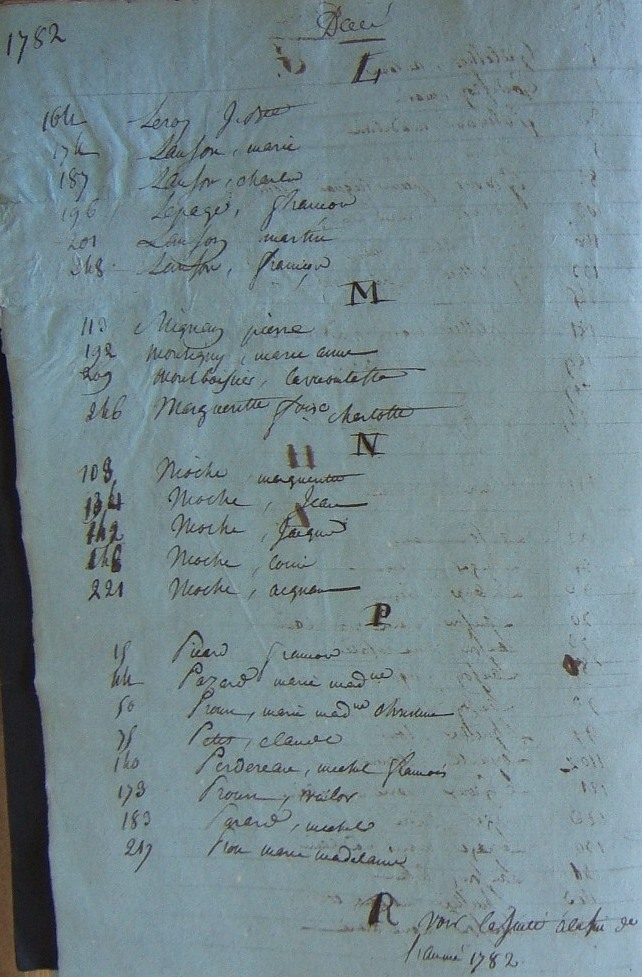 1782
Decé
L
164 Leroy
174 Lanson, marie
187 Lanson, charle
196 Lepage, françois
201 Lanson martin
248 Lanson, françois
M
113 Mignan pierre
192 montigny, marie anne
209 montboissier,
246 Marguerite fçoise charlotte
N
108 Noche, marguerite
134 Noche, Jean
142 Noche, Jacque
Noche, louis
221 Noche, aignan
P
15 Picard françois
44 Pazard marie madne
50 Proux, marie madne christine
75 Petit, claude
140 Perdereau, michel françois
173 Proux,
183 michel
247 marie madelaine
R
Voir la suitte à la fin de
l'année 1782.